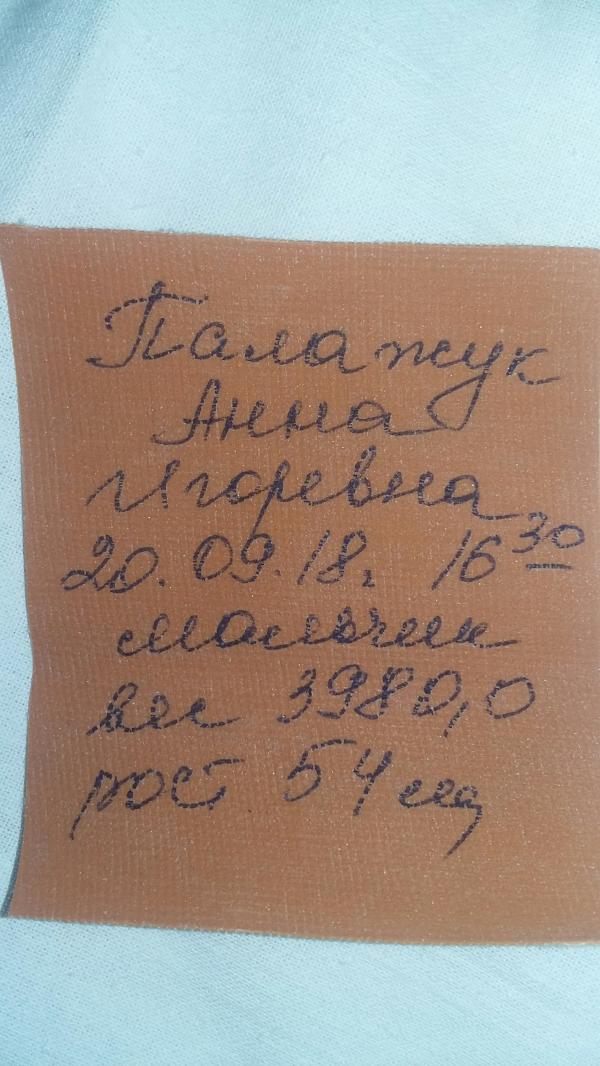 Палажук
Анна
Игоревна
20.09.18г 16 30
мальчик
вес 3980,0
рост 54 см